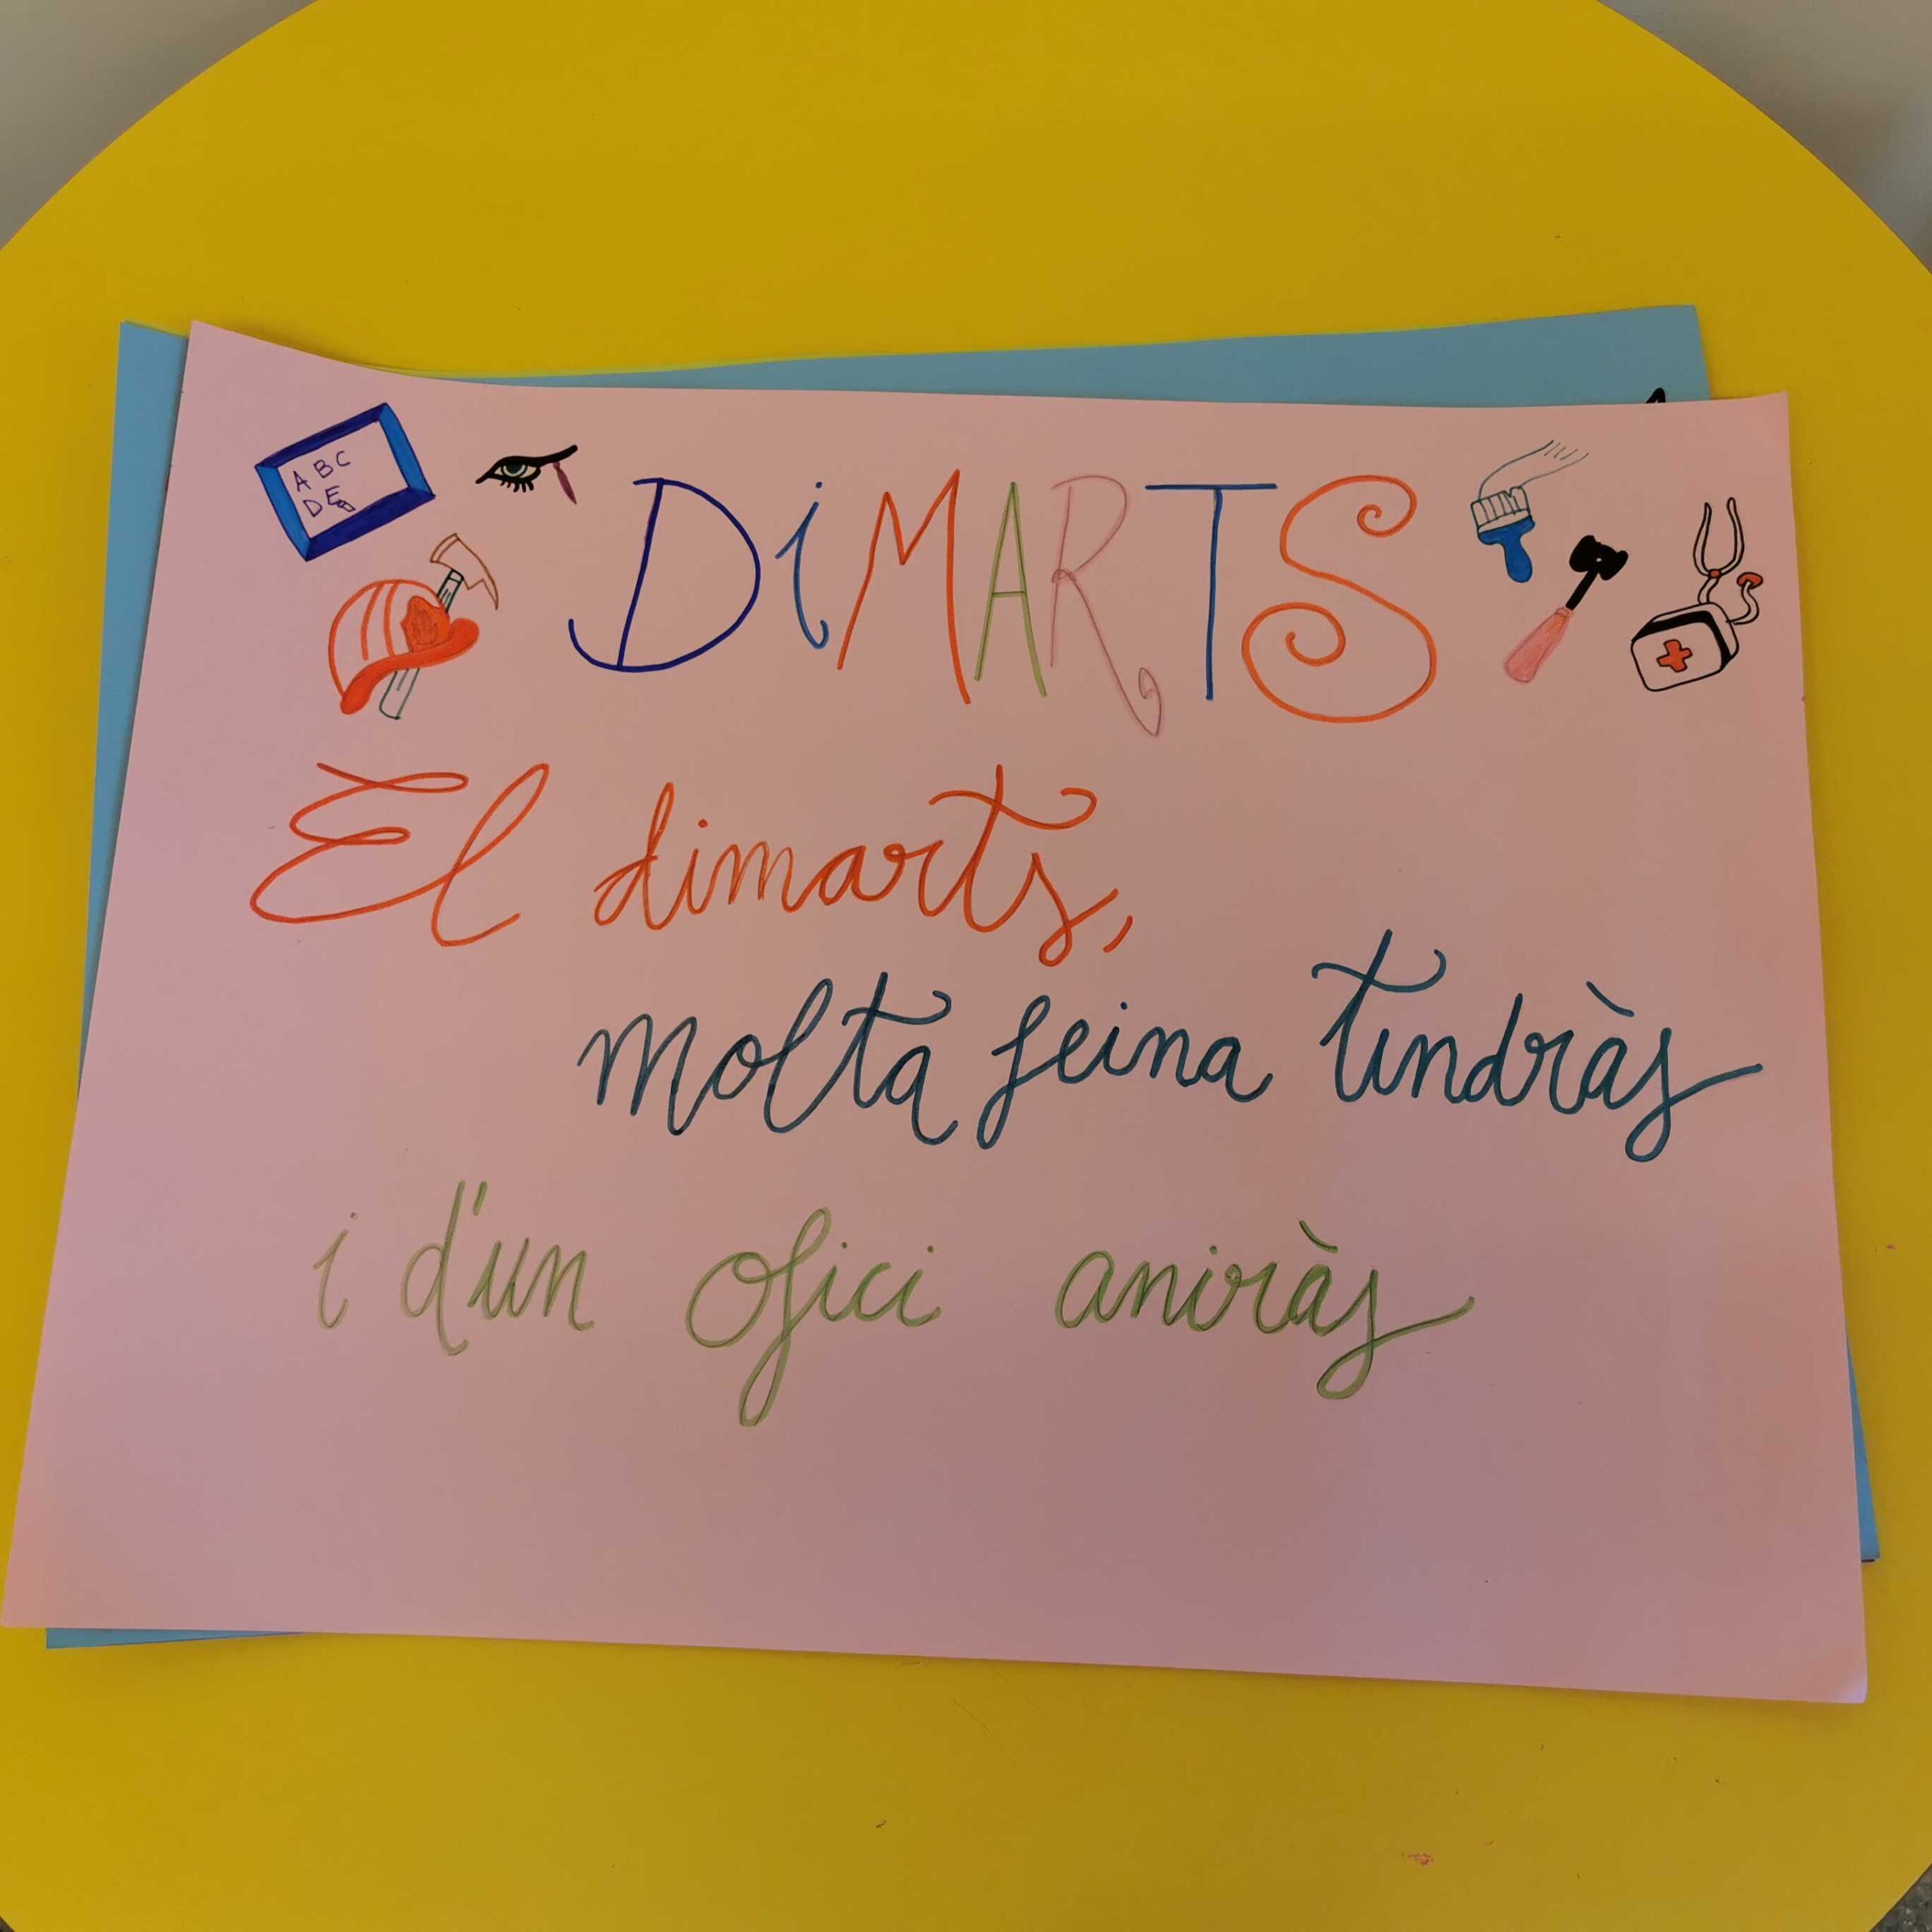 ABC
DE
DiMARTS
El dimarts,
molta feina tindràs
i d'un ofici aniràs